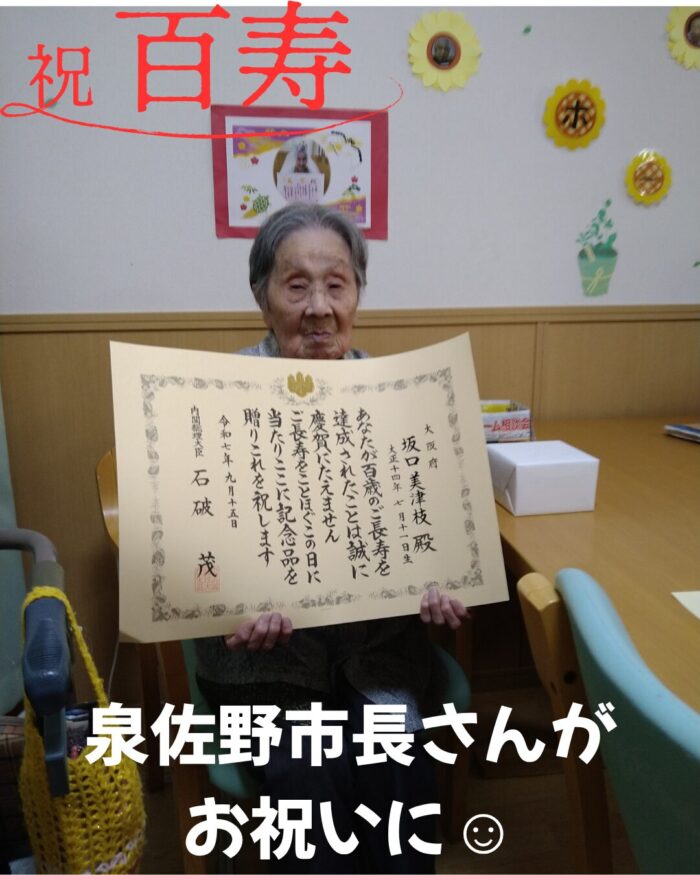 祝 百寿
ホ
大阪府
坂口美津枝 殿
大正十四年 七月十一日生
あなたが百歳のご長寿を
達成されたことは誠に
慶賀にたえません
ご長寿をことほぐこの日に
当たりここに記念品を
贈りこれを祝します
令和七年九月十五日
内閣総理大臣 石破 茂
ーム相談会
泉佐野市長さんが
お祝いに☺